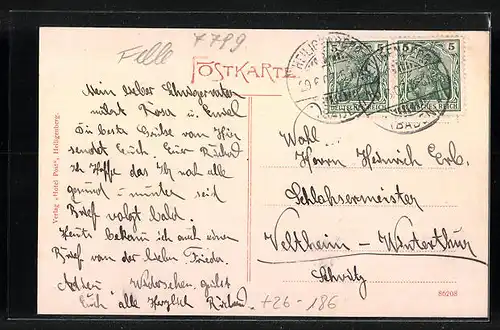 Felle
7789
POSTKARTE
HEILIGENBERG
(BADEN)
5 5
DEUTSCHES REICH
Mein lieber Schwiegervater
nebst Rosa u. Emil
Die besten Grüße von hier
sendet Euch. Euer
Ich hoffe das Ihr noch alle
gesund – munter seid
Brief volgt bald.
Heute bekam ich auch einen
Brief von der lieben Frieda.
Wiedersehen grüßt
Euch alle Herzlich
Wohl.
Herrn Heinrich Erb.
Schlossermeister
Veltheim – Winterthur
Schweiz
Verlag „Hotel Post", Heiligenberg.
85208
+26-186